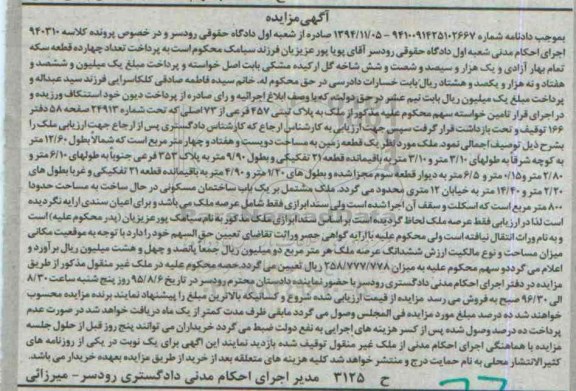 آگهی مزایده
بموجب دادنامه شماره ۹۴۱۰۰۹۱۴۲۵۱۰۲۶۶۷ - ۱۳۹۴/۱۱/۰۵ صادره از شعبه اول دادگاه حقوقی رودسر و در خصوص پرونده کلاسه ۹۴۰۳۱۰
اجرای احکام مدنی شعبه اول دادگاه حقوقی رودسر آقای پویا پور عزیزیان فرزند سیامک محکوم است به پرداخت تعداد چهارده قطعه سکه
تمام بهار آزادی و یک هزار و سیصد و شصت و شش شاخه گل ارکیده مشکی بابت اصل خواسته و پرداخت مبلغ یک میلیون و ششصد و
هفتاد و نه هزار و یکصد و هشتاد ریال بابت خسارات دادرسی در حق محکوم له، خانم سیده فاطمه صادقی کلکاسرایی فرزند سید عبداله و
پرداخت مبلغ یک میلیون ریال بابت نیم عشر در حق دولت که با وصف ابلاغ اجرائیه و رای صادره از پرداخت دیون خود استنکاف ورزیده و
در اجرای قرار تامین خواسته سهم محکوم علیه مذکور از ملک به پلاک ثبتی ۴۵۷ فرعی از ۷۳ اصلی که تحت شماره ۲۴۹۱۳ صفحه ۵۸ دفتر
۱۶۶ توقیف و تحت بازداشت قرار گرفت سپس جهت ارزیابی به کارشناس ارجاع که کارشناس دادگستری پس از ارجاع جهت ارزیابی ملک را
بشرح ذیل توصیف اجمالی نمود. ملک مورد نظر یک قطعه زمین به مساحت دویست و هفتاد و چهار متر مربع است که شمالا بطول ۱۳/۶۰ متر
به کوچه شرقا به طولهای ۳/۱۰ متر و ۳/۱۰ متر به باقیمانده قطعه ۳۱ تفکیکی و بطول ۹/۹۰ متر به پلاک ۳۵۳ فرعی جنوبا به طولهای ۶/۱۰ متر و
۲/۸۰ متر و ۰/۱۵ متر و ۶/۵ متر به دیوار قطعه سوم مجزا شده و بطول های ۱/۲۰ متر و ۴/۹۰ متر به باقیمانده قطعه ۳۱ تفکیکی و غربا بطول های
۲/۲۰ متر و ۱۴/۴۰ متر به خیابان ۱۲ متری محدود می گردد. ملک مشتمل بر یک باب ساختمان مسکونی در حال ساخت به مساحت حدودا
۸۰۰ متر مربع است که اسکلت و سقف آن اجرا شده است ولی سند ابرازی فقط شامل عرصه ملک می باشد و برای اعیان سندی ارایه نگردیده
است لذا در ارزیابی فقط عرصه ملک لحاظ گردیده است بر اساس سند ابرازی ملک مذکور به نام سیامک پور عزیزیان (پدر محکوم علیه) است
و به نام وراث انتقال نیافته است ولی محکوم علیه با ارایه گواهی حصر وراثت تقاضای تعیین حق السهم خود را دارد با توجه به موقعیت مکانی
میزان مساحت و نوع مالکیت ارزش ششدانگ عرصه ملک هر متر مربع دو میلیون ریال جمعا پانصد و چهل و هشت میلیون ریال برآورد و
اعلام می گردد و سهم محکوم علیه به میزان ۲۵۸/۷۷۷/۷۷۸ ریال تعیین می گردد حصه محکوم علیه در ملک غیر منقول مذکور از طریق
مزایده در دفتر اجرای احکام مدنی دادگستری رودسر با حضور نماینده دادستان محترم رودسر در تاریخ ۹۵/۸/۶ روز پنج شنبه ساعت ۸/۳۰
الی ۹/۳۰ صبح به فروش می رسد مزایده از قیمت ارزیابی شده شروع و کسانیکه بالاترین مبلغ را پیشنهاد نمایند برنده مزایده محسوب
خواهند شد ده درصد مبلغ مورد مزایده فی المجلس وصول می گردد مابقی ظرف مدت کمتر از یک ماه دریافت خواهد شد در صورت عدم
پرداخت ده درصد وصول شده پس از کسر هزینه های اجرایی به نفع دولت ضبط می گردد خریداران می توانند پنج روز قبل از حلول جلسه
مزایده با هماهنگی اجرای احکام مدنی از ملک غیر منقول توقیف شده بازدید نمایند این اگهی برای یک نوبت در یکی از روزنامه های
کثیر الانتشار محلی به نام حمایت درج و منتشر خواهد شد کلیه هزینه های متعلقه بعد از خرید از طریق مزایده بعهده خریدار می باشد.
ح ۳۱۲۵ مدیر اجرای احکام مدنی دادگستری رودسر - میرزائی